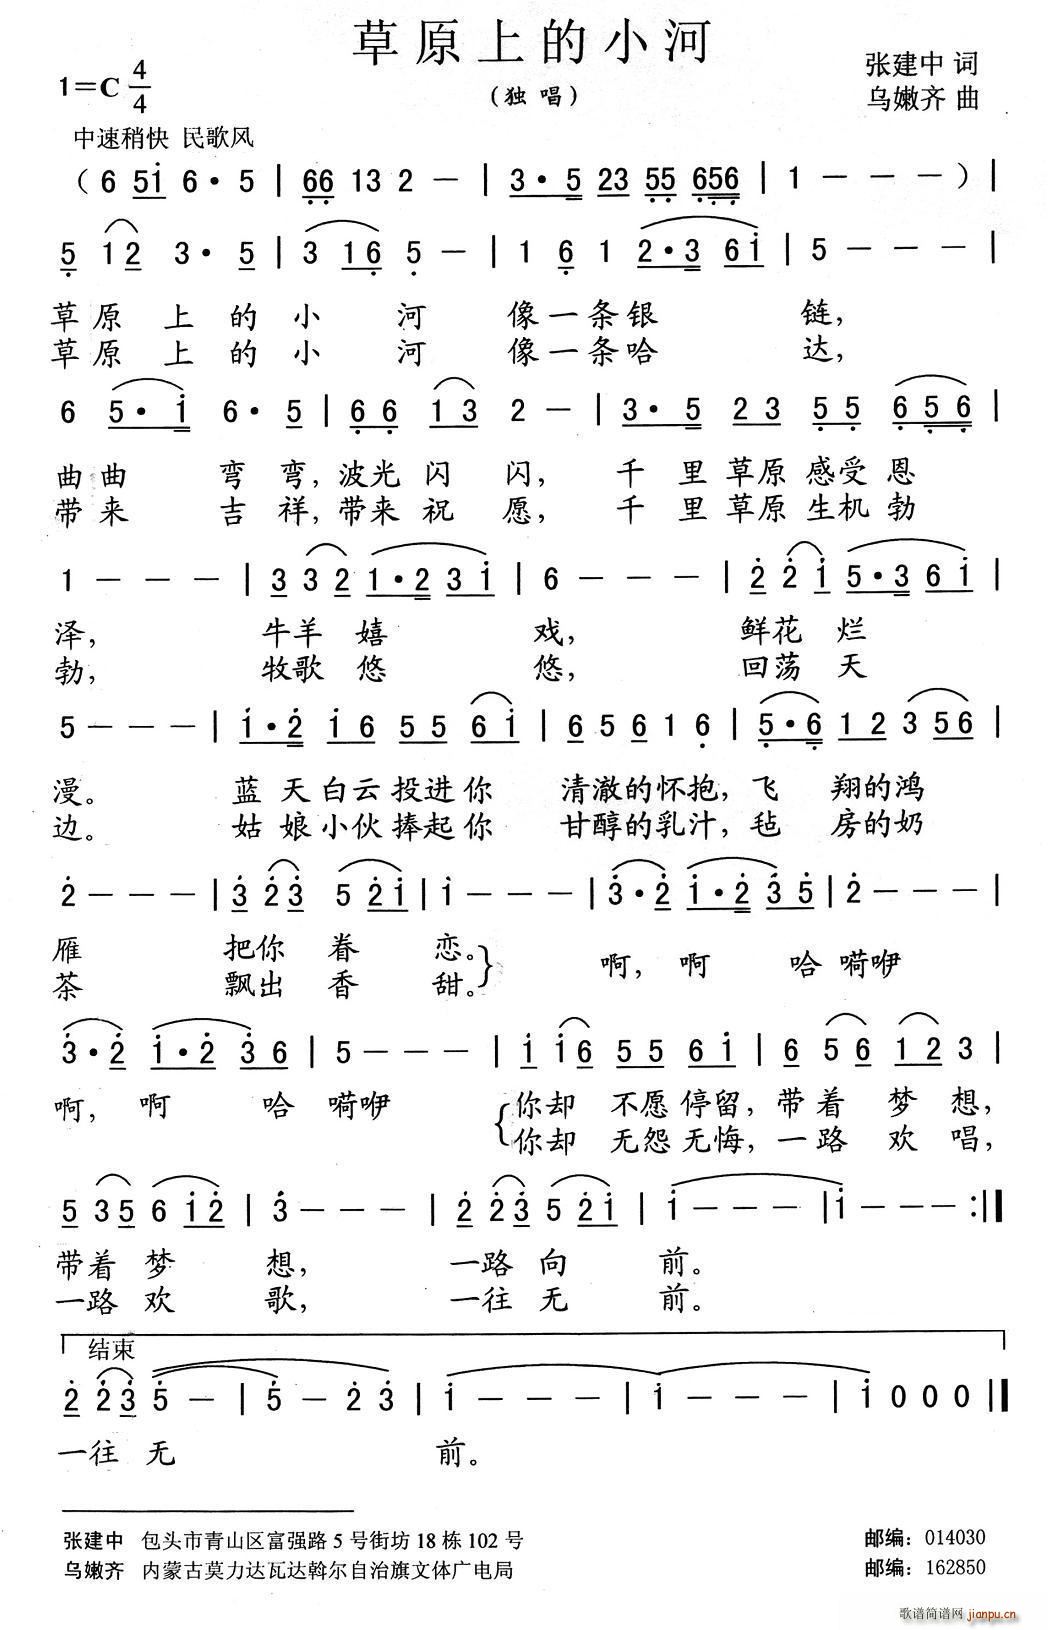 草原上的小河
(独唱)
张建中 词
乌嫩齐 曲
1=C 4/4
中速稍快 民歌风
(6 51 6· 5 | 66 13 2 - | 3· 5 23 55 656 | 1 - - - ) |
5 12 3· 5 | 3 16 5 - | 1 6 1 2·3 61 | 5 - - - |
草原 上 的 小 河 像一条银 链,
草原 上 的 小 河 像一条哈 达,
6 5· 1 6· 5 | 66 13 2 - | 3· 5 23 55 656 |
曲曲 弯 弯, 波光 闪 闪, 千 里 草原 感受 恩
带来 吉 祥, 带来 祝 愿, 千 里 草原 生机 勃
1 - - - | 3 32 1·2 31 | 6 - - - | 2 21 5·3 61 |
泽, 牛羊 嬉 戏, 鲜花 烂
勃, 牧歌 悠 悠, 回荡 天
5 - - - | 1·2 16 55 61 | 65 61 6 | 5·6 12 356 |
漫。 蓝 天 白云 投进 你 清澈的怀抱, 飞 翔的鸿
边。 姑 娘 小伙 捧起 你 甘醇的乳汁, 毡 房的奶
2 - - - | 3 23 5 21 | 1 - - - | 3·2 1·2 35 | 2 - - - |
雁 把你 眷 恋。 啊, 啊 哈 嗬咿
茶 飘出 香 甜。
3·2 1·2 36 | 5 - - - | 1 16 55 61 | 6 56 12 3 |
啊, 啊 哈 嗬咿 你却 不愿 停留, 带着 梦 想,
你却 无怨 无悔, 一路 欢 唱,
5 35 6 12 | 3 - - - | 2 23 5 21 | 1 - - - | 1 - - - :||
带着 梦 想, 一路 向 前。
一路 欢 歌, 一往 无 前。
结束
2 23 5 - | 5 - 2 3 | 1 - - - | 1 - - - | 1 0 0 0 ||
一往 无 前。
张建中 包头市青山区富强路 5 号街坊 18 栋 102 号 邮编: 014030
乌嫩齐 内蒙古莫力达瓦达斡尔自治旗文体广电局 邮编: 162850
歌谱简谱网 jianpu.cn